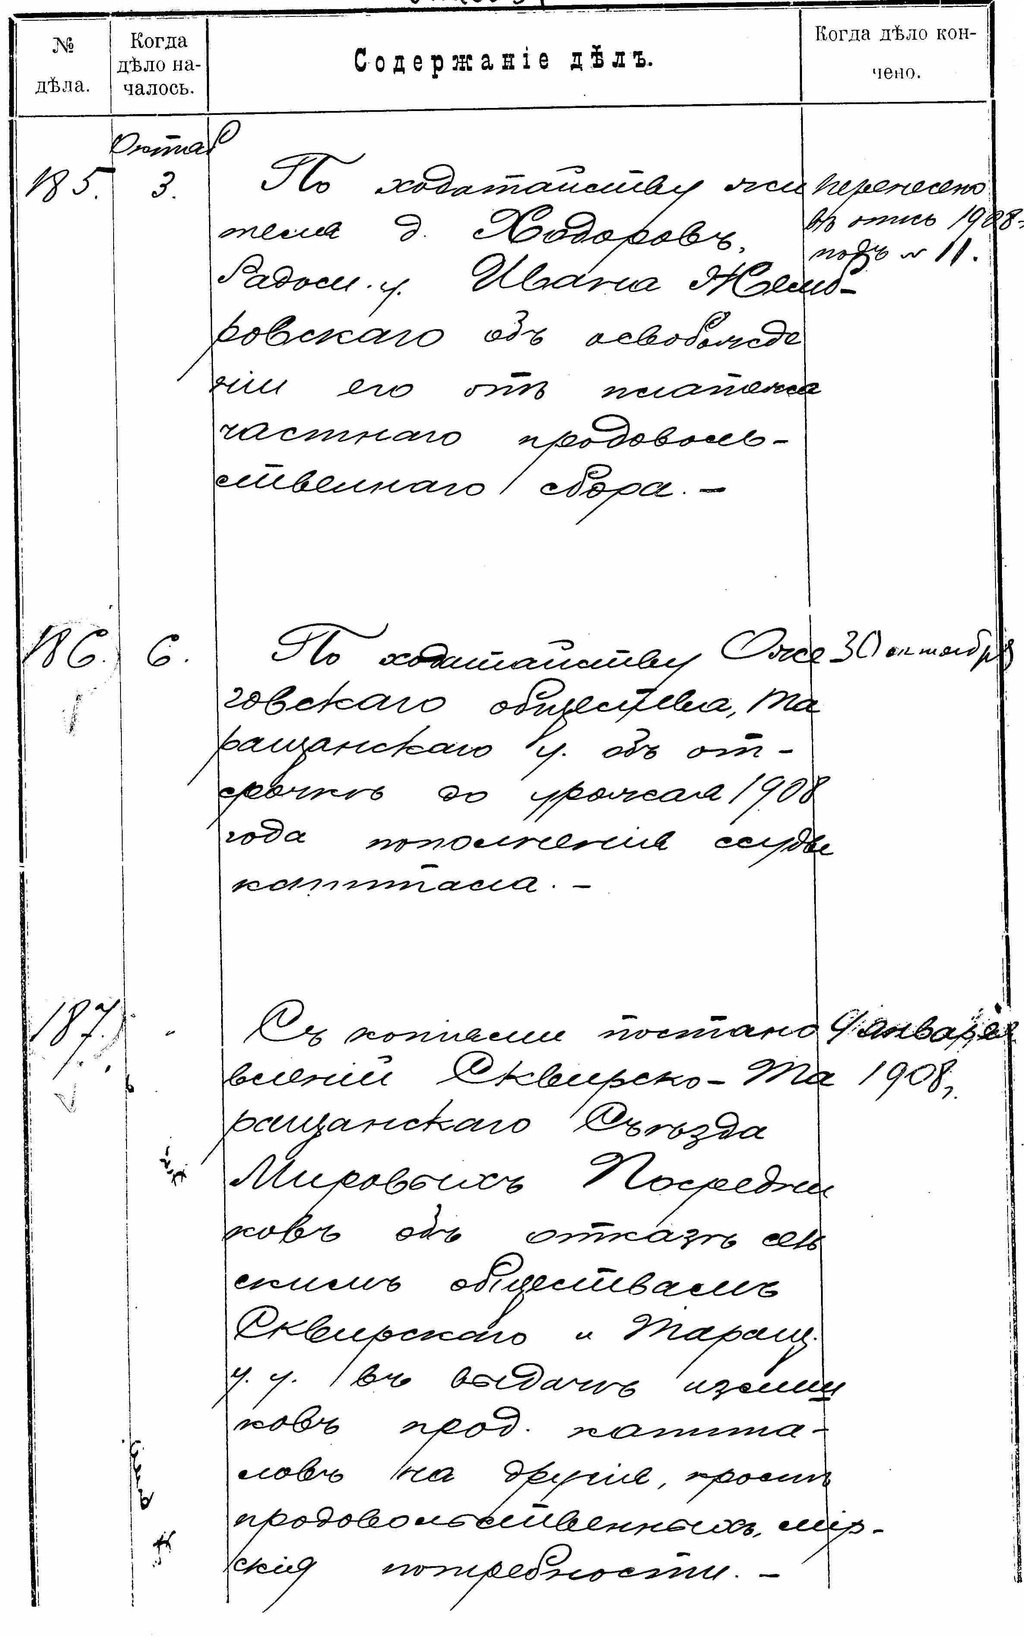 № дѣла.
Когда дѣло на-
чалось.
Содержаніе дѣлъ.
Когда дѣло кон-
чено.
185. 3.
По ходатайству жи
теля д. Ходоровъ,
Радом. у. Ивана
ровскаго объ освобожде
ніи его отъ платежа
частнаго продоволь-
ственнаго сбора. —
перенесено
въ опись 1908
подъ № 11.
186. 6.
По ходатайству Оже
говскаго общества, Та
ращанскаго у. объ от-
срочкѣ до урожая 1908
года пополненія ссудн
капитала. —
30 октября
187. "
Съ копіями постано
вленій Сквирско-Та
ращанскаго Съѣзда
Мировыхъ Посредни
ковъ объ отказѣ сел
скимъ обществамъ
Сквирскаго и Таращ.
у. у. въ выдачѣ излиш
ковъ прод. капита-
ловъ на другія, кромѣ
продовольственныхъ, мір-
скія потребности. —
9 января
1908 г.